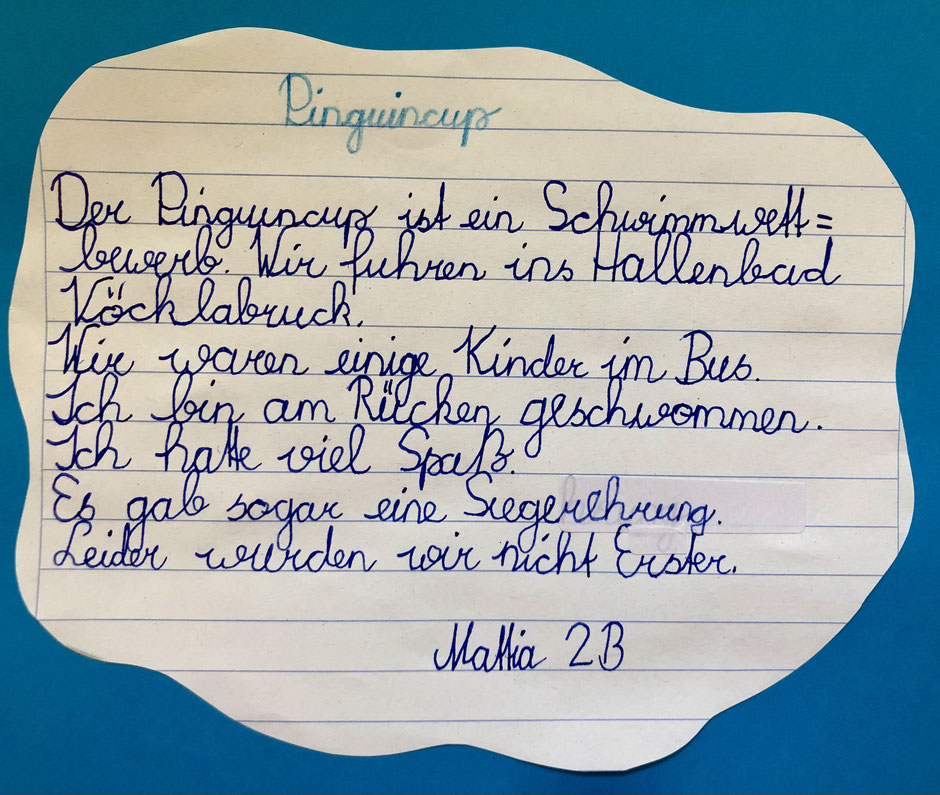 Pinguincup
Der Pinguincup ist ein Schwimmwett=
bewerb. Wir fuhren ins Hallenbad
Vöcklabruck.
Wir waren einige Kinder im Bus.
Ich bin am Rücken geschwommen.
Ich hatte viel Spaß.
Es gab sogar eine Siegerehrung.
Leider wurden wir nicht Erster.
Mattia 2B